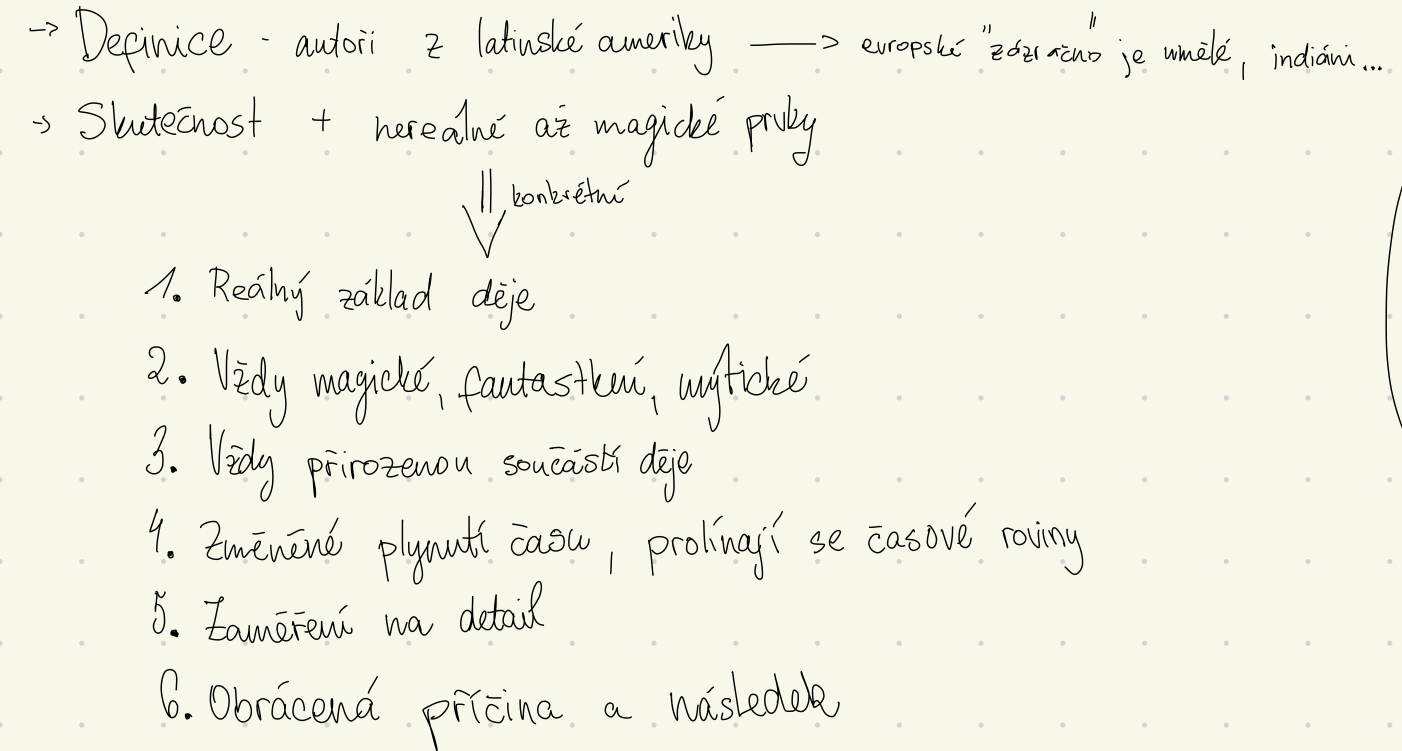 → Definice - autoři z latinské ameriky → evropské "zázračno" je umělé, indiáni...
→ Skutečnost + nereálné až magické prvky
konkrétní
1. Reálný základ děje
2. Vždy magické, fantastkní, mýtické
3. Vždy přirozenou součástí děje
4. Změněné plynutí času, prolínají se časové roviny
5. Zaměření na detail
6. Obrácená příčina a následek